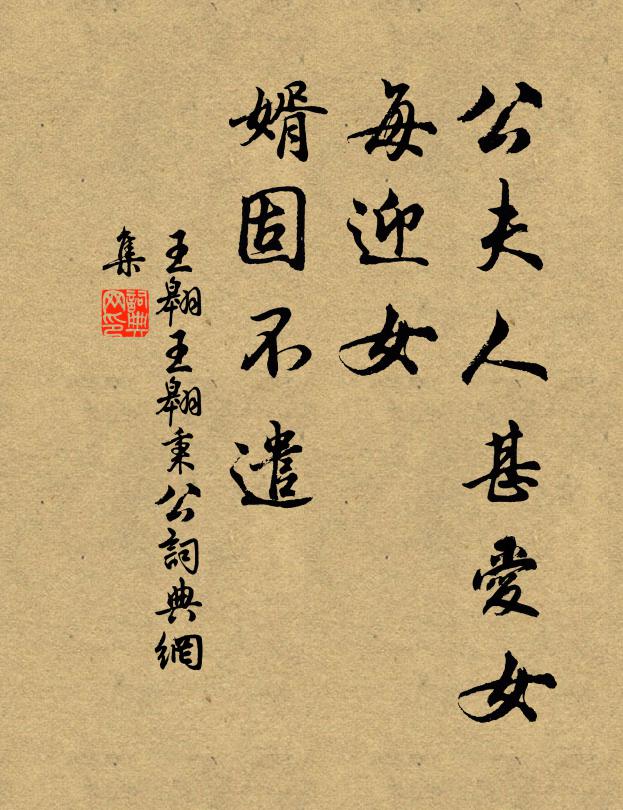 公夫人甚愛女
每迎女
婿固不遣
王翱王翱秉公詞典網
集
詞典网印